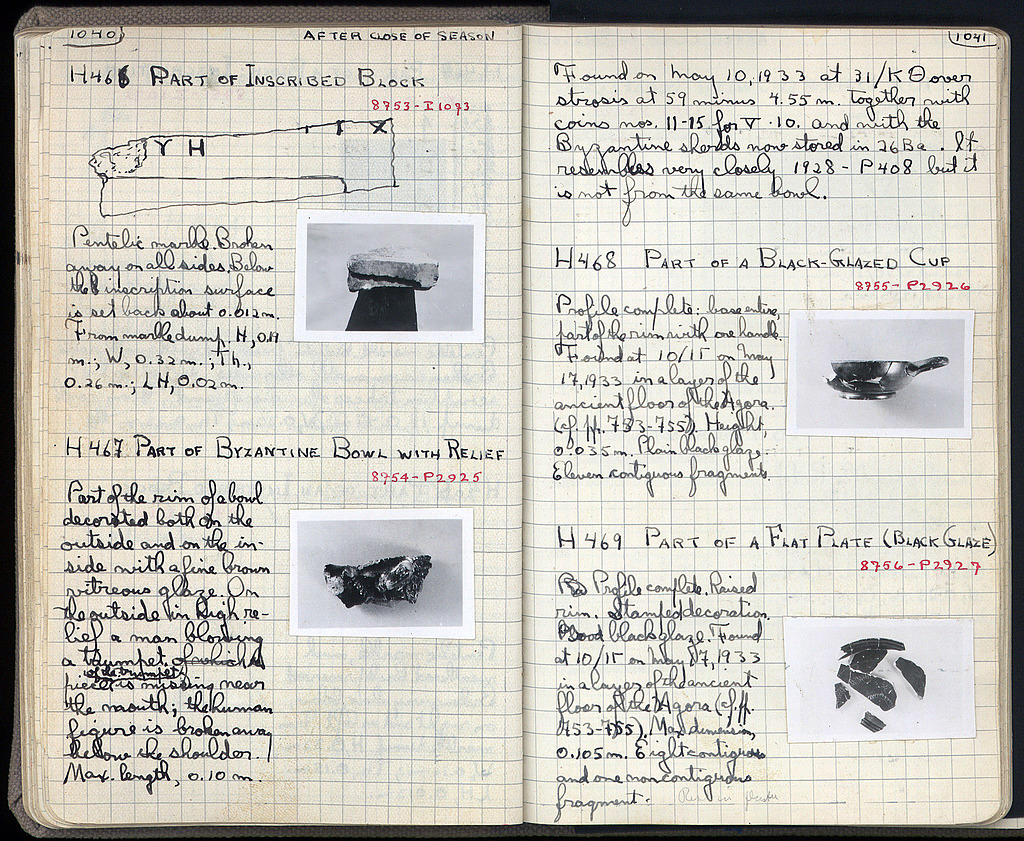 1040
AFTER CLOSE OF SEASON
H466 PART OF INSCRIBED BLOCK
8753-I1093
Y H
Pentelic marble. Broken
away on all sides. Below
the inscription surface
is set back about 0.012 m.
From marble dump. H, 0.19
m.; W, 0.32 m.; Th.,
0.26 m.; LH, 0.02 m.
H467 PART OF BYZANTINE BOWL WITH RELIEF
8754-P2925
Part of the rim of a bowl
decorated both on the
outside and on the in-
side with a fine brown
vitreous glaze. On
the outside in high re-
lief a man blowing
a trumpet. of which a
of the trumpet
piece is missing near
the mouth; the human
figure is broken away
below the shoulder.
Max. length, 0.10 m.
1041
Found on May 10, 1933 at 31/ΚΘ over
strosis at 59 minus 4.55 m. together with
coins nos. 11-15 for V · 10. and with the
Byzantine sherds now stored in 26 Ba. It
resembles very closely 1928-P408 but it
is not from the same bowl.
H468 PART OF A BLACK-GLAZED CUP
8755-P2926
Profile complete: base entire,
part of the rim with one handle.
Found at 10/ΙΕ on May
17, 1933 in a layer of the
ancient floor of the Agora.
(cf. pp. 753-755). Height,
0.035 m. Plain black glaze.
Eleven contiguous fragments.
H469 PART OF A FLAT PLATE (BLACK GLAZE)
8756-P2927
Profile complete. Raised
rim. Stamped decoration.
Good black glaze. Found
at 10/ΙΕ on May 17, 1933
in a layer of the ancient
floor of the Agora (cf. pp.
753-755). Max dimension,
0.105 m. Eight contiguous
and one noncontiguous
fragment.